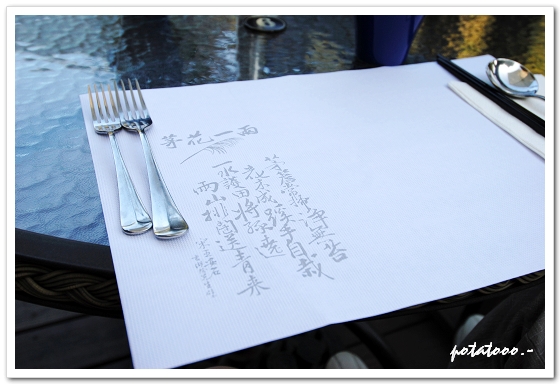 茅花一兩
茅簷常掃淨無苔
花木成蹊手自栽
一水護田將綠遶
兩山排闥送青来
宋王安石
potatooo.~